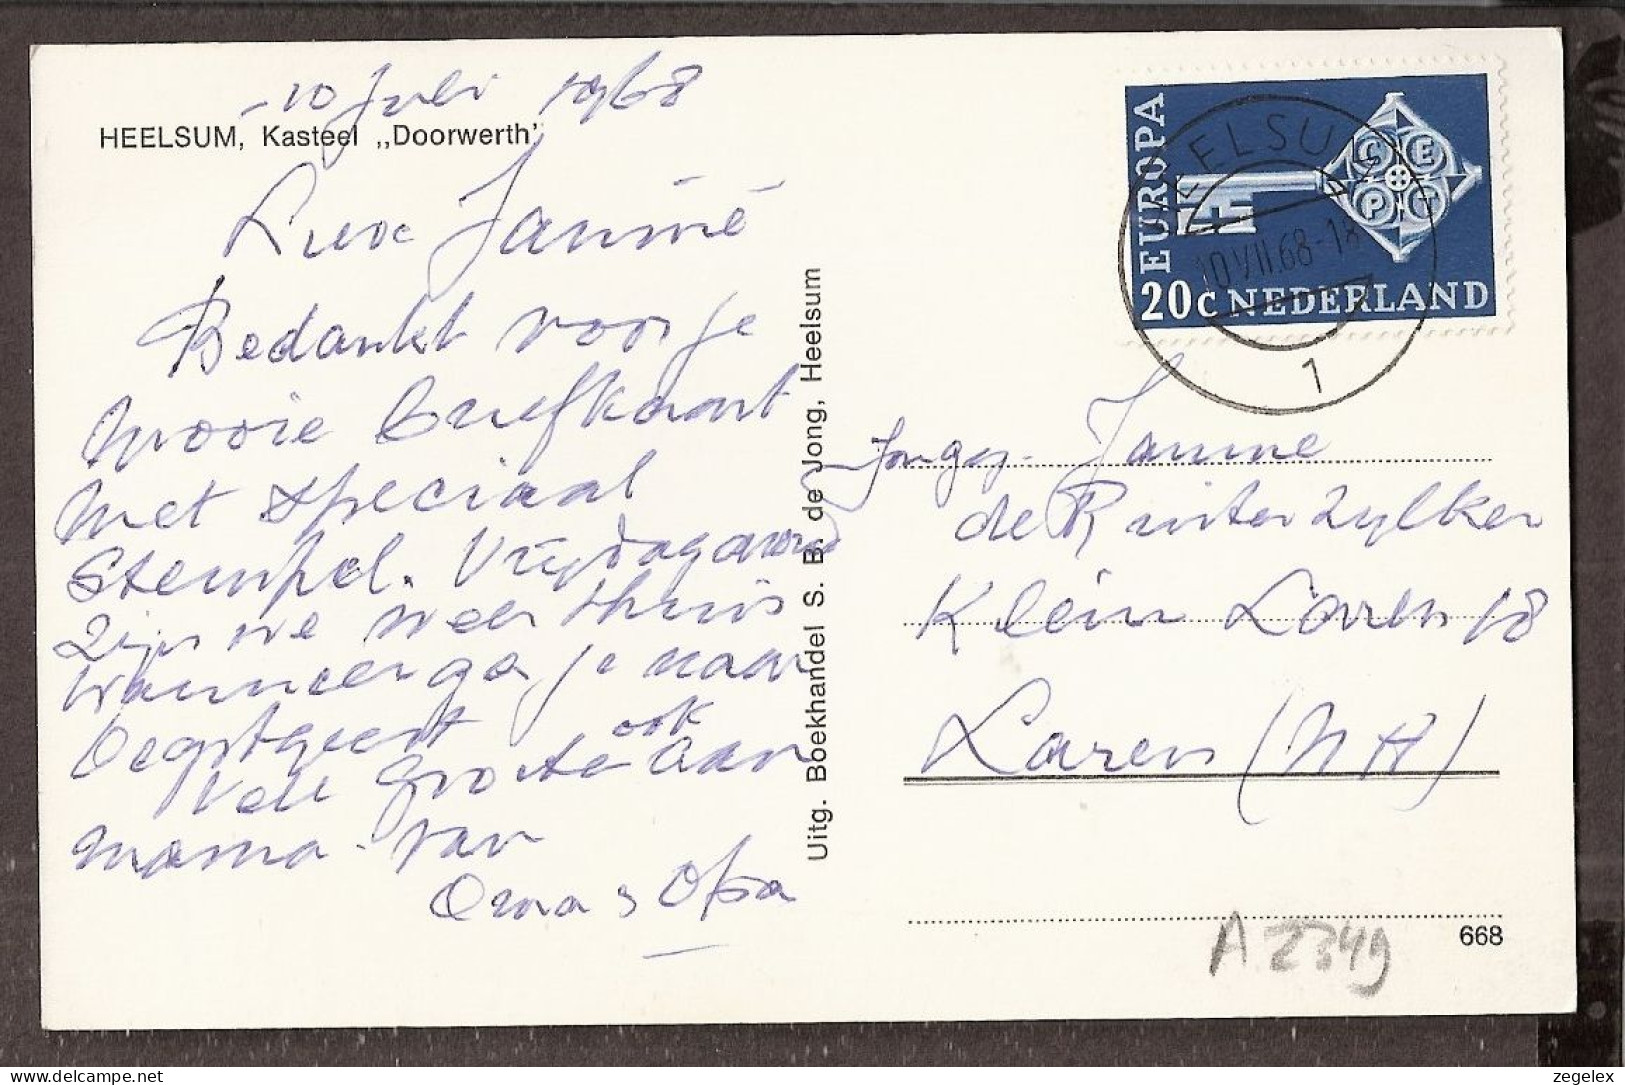 -10 Juli 1968
HEELSUM, Kasteel „Doorwerth"
Lieve Jannie
Bedankt voor je
mooie briefkaart
met speciaal
Stempel. Vrijdagavond
zijn we weer thuis
wanneer ga je naar
Oegstgeest
ook
Vele groeten aan
mama. van
Oma & Opa
Uitg. Boekhandel S. B. de Jong, Heelsum
EUROPA
CEPT
20c NEDERLAND
HEELSUM
10.VII.68-18
1
Jannie
de Ruiter Zylker
Klein Laren 18
Laren (NH)
A2349
668
zegelex